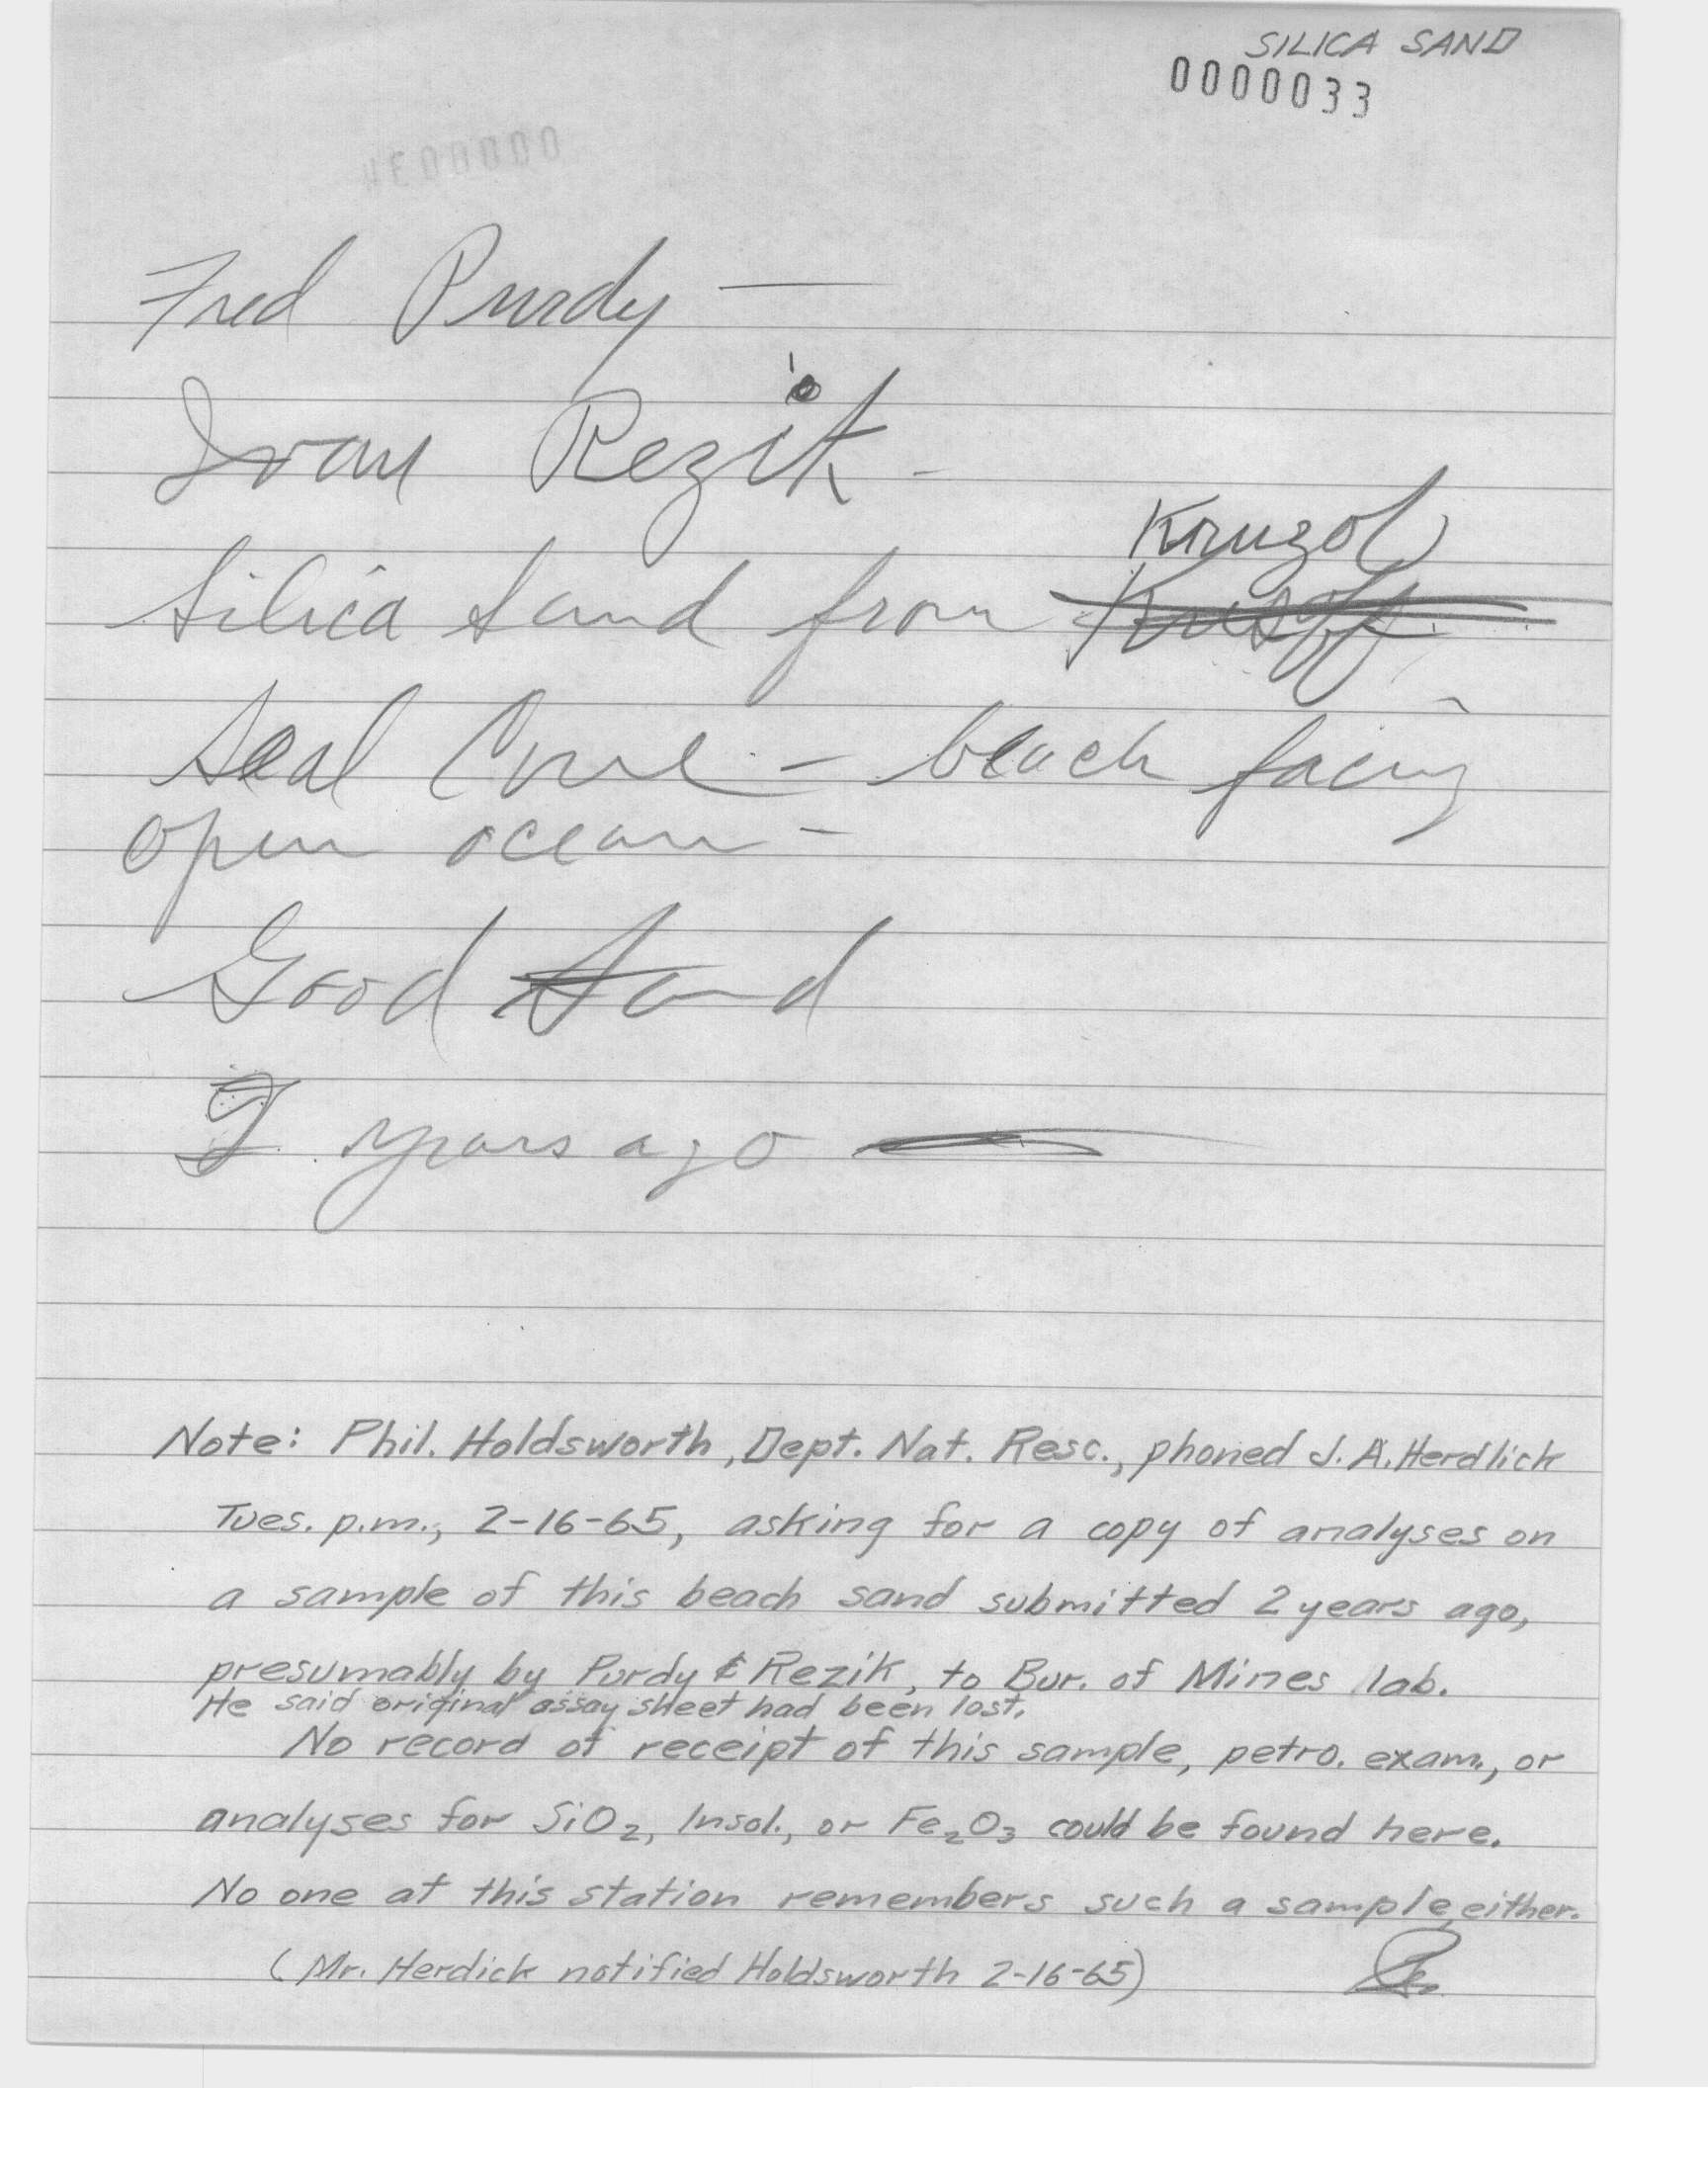 SILICA SAND
0000033
Fred Purdy —
Ivan Rezik -
Kruzof
Silica Sand from
Seal Cove - beach facing
open ocean -
Good Sand
2 years ago
Note: Phil. Holdsworth, Dept. Nat. Resc., phoned J. A. Herdlick
Tues. p.m., 2-16-65, asking for a copy of analyses on
a sample of this beach sand submitted 2 years ago,
presumably by Purdy & Rezik, to Bur. of Mines lab.
He said original assay sheet had been lost.
No record of receipt of this sample, petro. exam., or
analyses for SiO₂, Insol., or Fe₂O₃ could be found here.
No one at this station remembers such a sample either.
(Mr. Herdick notified Holdsworth 2-16-65)